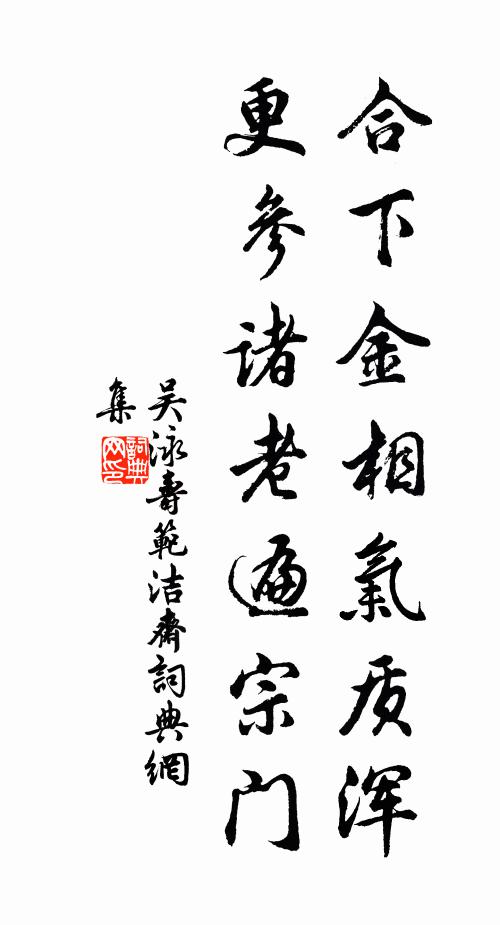 合下金相氣质浑
更參诸老遍宗门
吴泳壽範洁齋詞典網
集
詞典网印